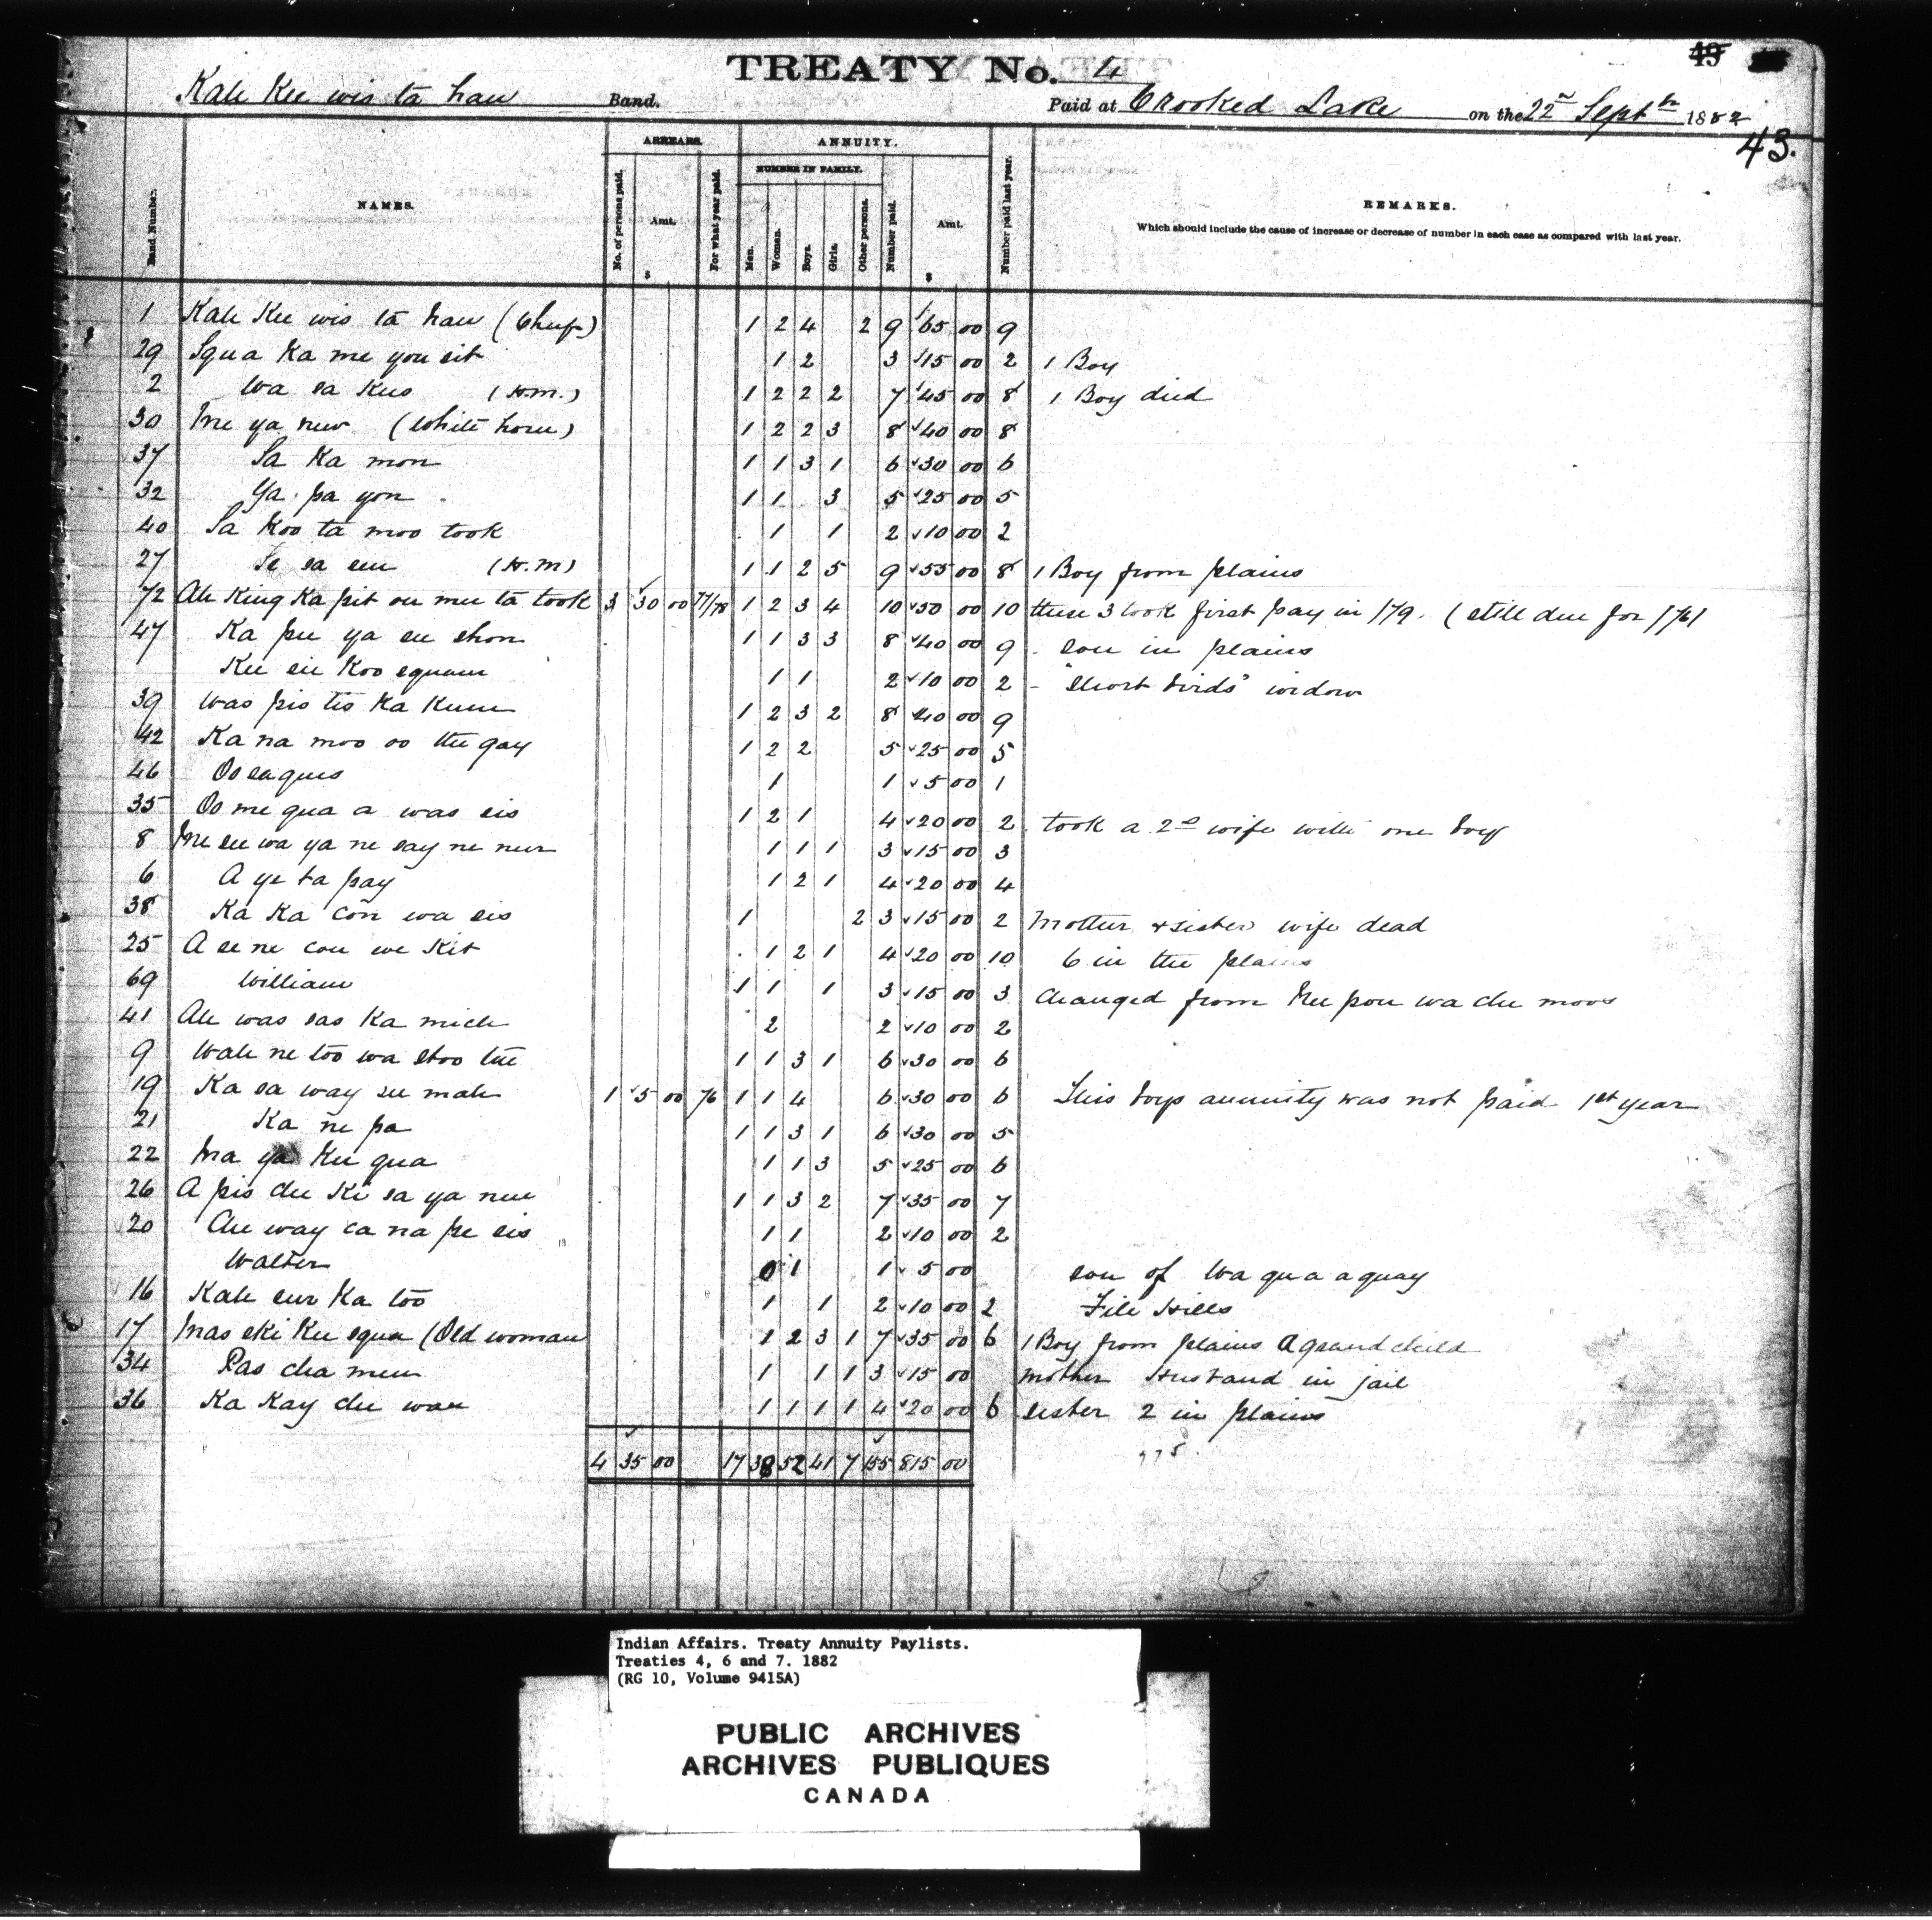 49
TREATY No. 4
Kah Kee wis ta haw Band. Paid at Crooked Lake on the 22nd Septbr 1882
43.
Band Number. NAMES. ARREARS. No. of persons paid. Amt. $ For what year paid. ANNUITY. NUMBER IN FAMILY. Men. Women. Boys. Girls. Other persons. Number paid. Amt. $ Number paid last year. REMARKS.
Which should include the cause of increase or decrease of number in each case as compared with last year.
1 Kah Kee wis ta haw (Chief) 1 2 4 2 9 65 00 9
29 Squa Ka me you sit 1 2 3 15 00 2 1 Boy
2 Wa sa Kus (H.M.) 1 2 2 2 7 45 00 8 1 Boy died
30 Me ya new (White horse) 1 2 2 3 8 40 00 8
37 Sa Ka mon 1 1 3 1 6 30 00 6
32 Ya pa yon 1 1 3 5 25 00 5
40 Sa Koo ta moo took 1 1 2 10 00 2
27 Se sa sew (H.M) 1 1 2 5 9 55 00 8 1 Boy from plains
72 Ah King Ka pit ou mee ta took 3 30 00 77/78 1 2 3 4 10 50 00 10 these 3 took first pay in 179. (still due for 176)
47 Ka pee ya see shon 1 1 3 3 8 40 00 9 - son in plains
Kee sie Koo squaw 1 1 2 10 00 2 - "Short birds" widow
39 Was pis tis Ka Kum 1 2 3 2 8 40 00 9
42 Ka na moo oo the gay 1 2 2 5 25 00 5
46 Oo saques 1 1 5 00 1
35 Oo me qua a was sis 1 2 1 4 20 00 2 took a 2nd wife with one boy
8 Me see wa ya ne say ne new 1 1 1 3 15 00 3
6 A ye ta pay 1 2 1 4 20 00 4
38 Ka Ka con wa sis 1 2 3 15 00 2 Mother & sister wife dead
25 A se ne cou we Kit 1 2 1 4 20 00 10 6 in the plains
69 William 1 1 1 3 15 00 3 Changed from Nee pou wa che moos
41 Ah was sas Ka mich 2 2 10 00 2
9 Wah ne too wa stoo tin 1 1 3 1 6 30 00 6
19 Ka sa way see mah 1 5 00 76 1 1 4 6 30 00 6 This boys annuity was not paid 1st year
21 Ka ne pa 1 1 3 1 6 30 00 5
22 Ma ya Kee qua 1 1 3 5 25 00 6
26 A pis che Ki sa ya new 1 1 3 2 7 35 00 7
20 Au way ca na pe sis 1 1 2 10 00 2
Walter 0 1 1 5 00 son of Wa qua a quay
16 Kah sew Ka too 1 1 2 10 00 2 File Hills
17 Mas ski Kee squa (Old woman 1 2 3 1 7 35 00 6 1 Boy from plains A grand child
34 Pas cha mew 1 1 1 3 15 00 Mother Husband in jail
36 Ka Kay che wan 1 1 1 1 4 20 00 6 sister 2 in plains
4 35 00 17 38 52 41 7 155 815 00
Indian Affairs. Treaty Annuity Paylists.
Treaties 4, 6 and 7. 1882
(RG 10, Volume 9415A)
PUBLIC ARCHIVES
ARCHIVES PUBLIQUES
CANADA